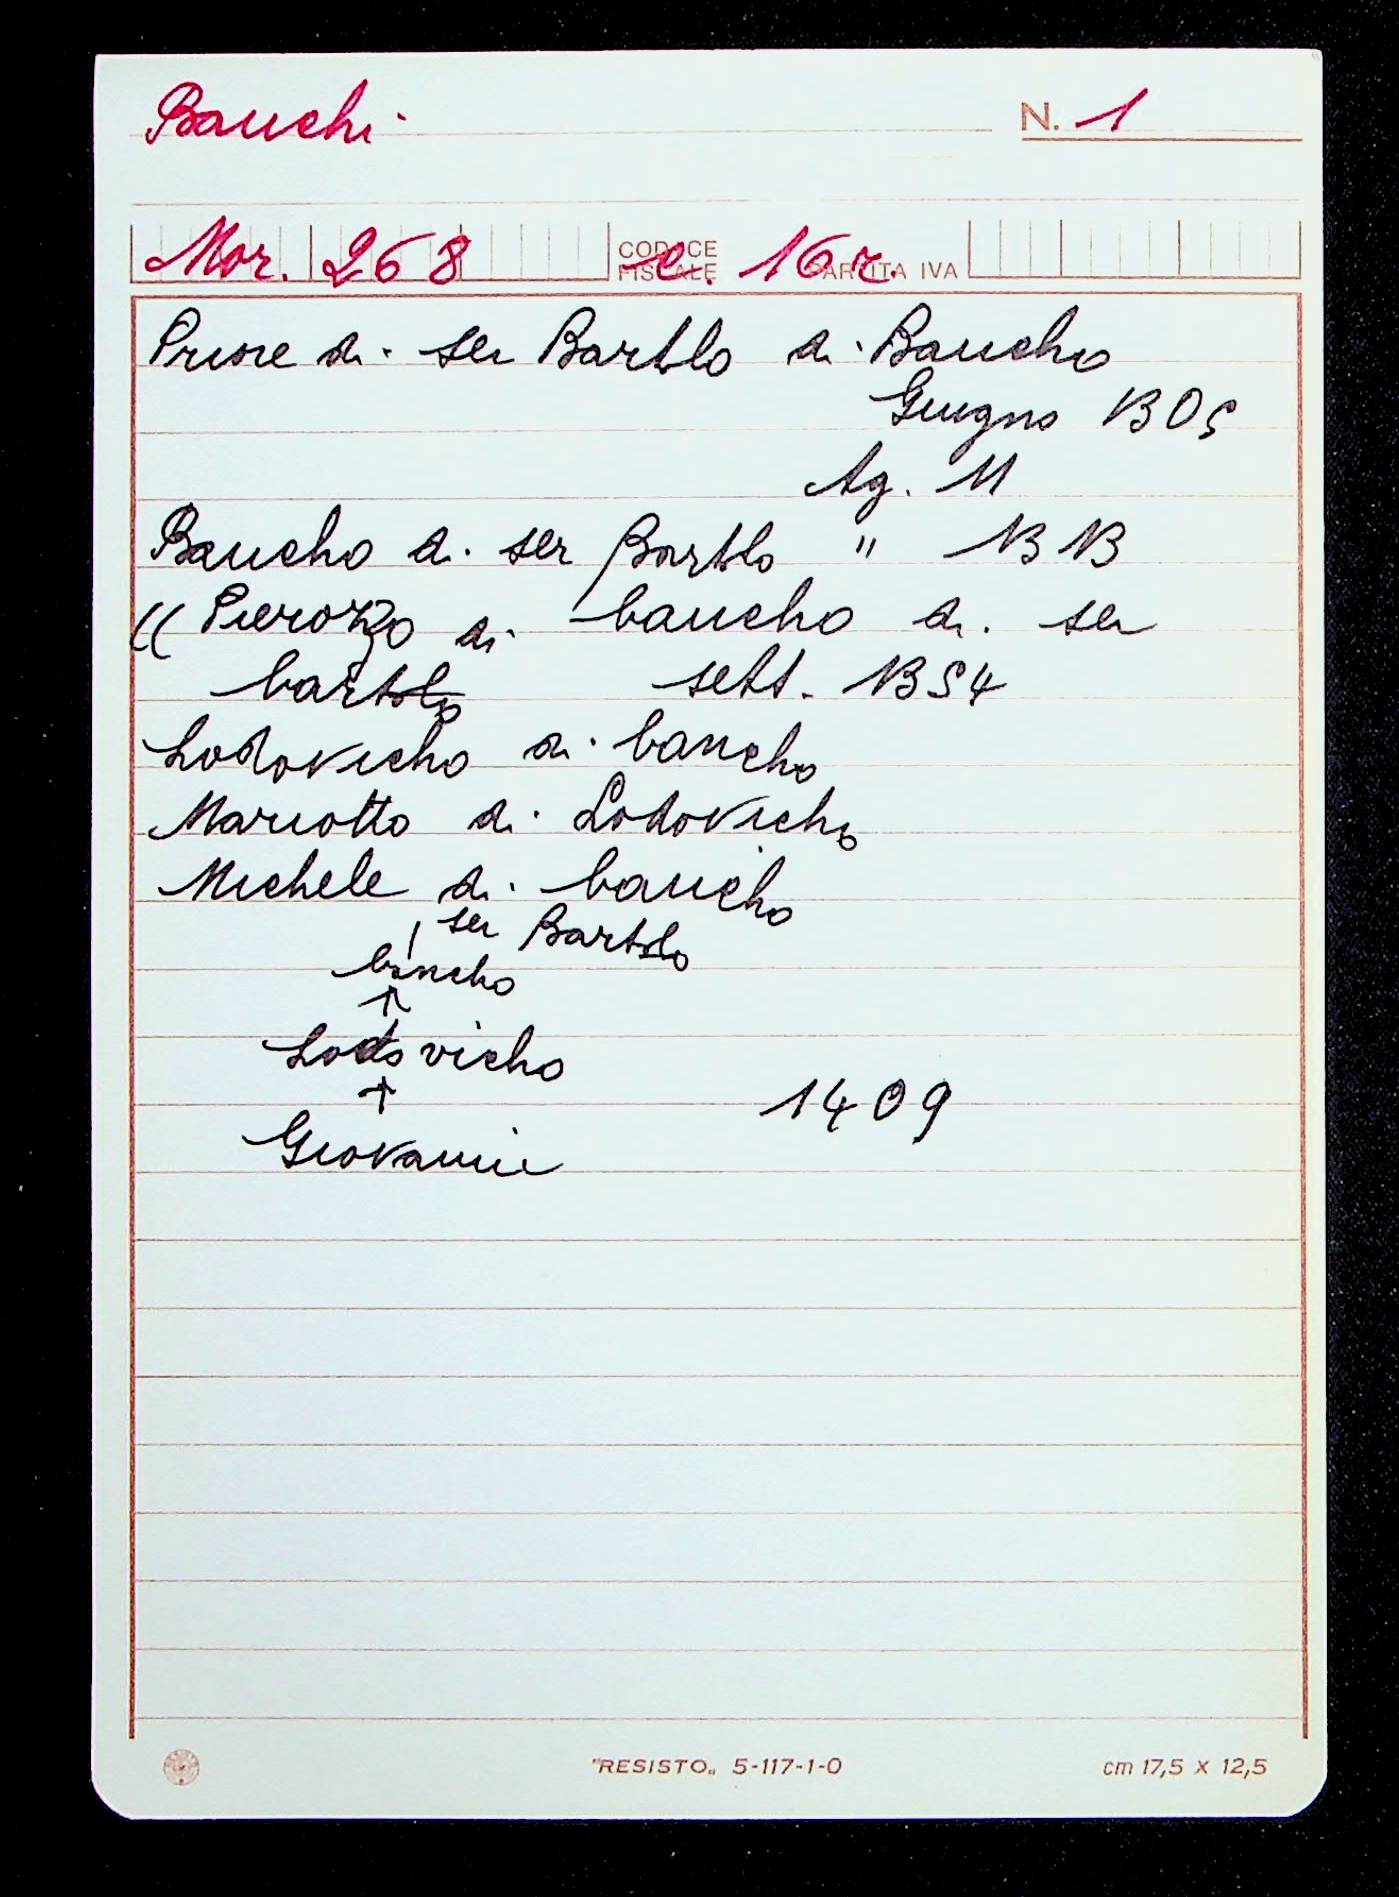 Banchi
N. 1
Mor. 268 CODICE FISCALE c. 16r. PARTITA IVA
Prione di ser Bartolo di Bancho
Giugno 1305
Ag. 11
Bancho di ser Bartolo " 1313
(( Pierozzo di bancho di ser
bartolo sett. 1354
Lodovicho di bancho
Mariotto di Lodovicho
Michele di bancho
ser Bartolo
bancho
↑
Lodovicho
↑
1409
Giovanni
"RESISTO„ 5-117-1-0 cm 17,5 x 12,5